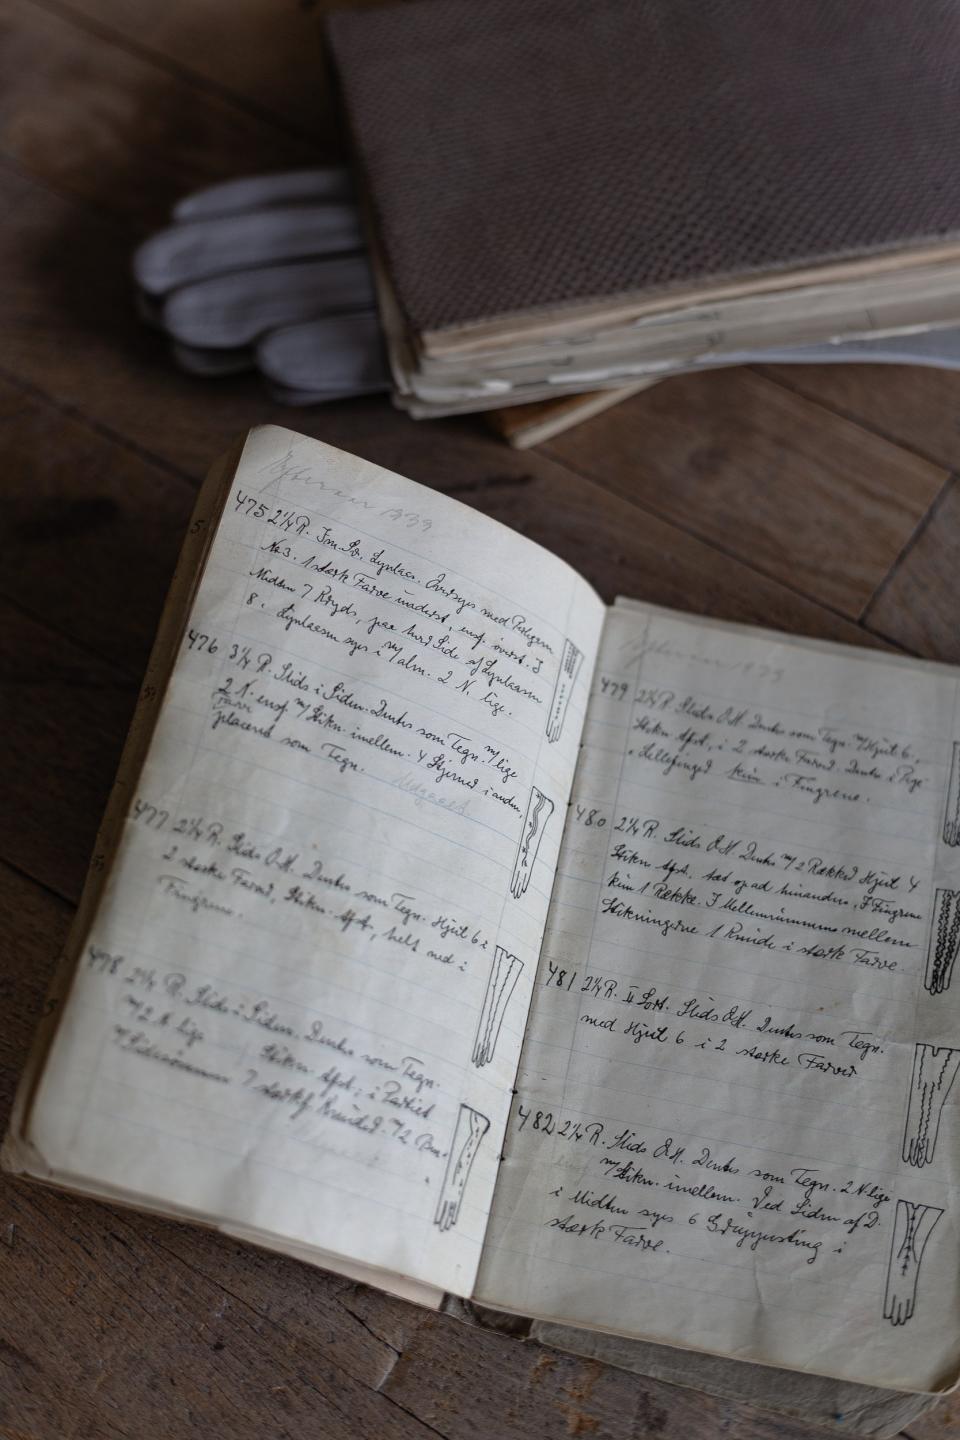 1939
475 2¼ R. Im. Sv. Lynlaas. Oversyes med Perlegarn
No 3. 1 stærk Farve inderst, ensf. øverst. I
Midten 7 Kryds, paa hver Side af Lynlaasen
8. Lynlaasen syes i m/ alm. 2 N. lige.
476 3¼ R. Slids i Siden. Dents som Tegn. m/ lige
2 N. ensf. m/ Stikn. imellem. 4 Stjerner i anden
Farve
placeret som Tegn.
Udgaaet.
477 2¼ R. Slids O.H. Dents som Tegn. Hjul 6 i
2 stærke Farver, Stikn. helt ned i
Fingrene.
478 2¼ R. Slids i Siden. Dents som Tegn.
m/ 2 N. lige Stikn. i Partiet
m/ Sidesømmen 7
479 2¼ R. Slids O.H. Dents som Tegn. m/ Hjul 6,
Stikn. i 2 stærke Farver. Dents i Pege
Lillefinger kun i Fingrene.
480 2¼ R. Slids O.H. Dents m/ 2 Rækker Hjul 4
Stikn. tæt op ad hinanden, I Fingrene
kun 1 Række. I Mellemrummene mellem
Stikningerne 1 Runde i stærk Farve.
481 2¼ R. II Sort. Slids O.H. Dents som Tegn.
med Hjul 6 i 2 stærke Farver
482 2¼ R. Slids O.H. Dents som Tegn. 2 N. lige
m/ Stikn. imellem. Ved Siden af D.
i Midten syes 6 i
stærk Farve.